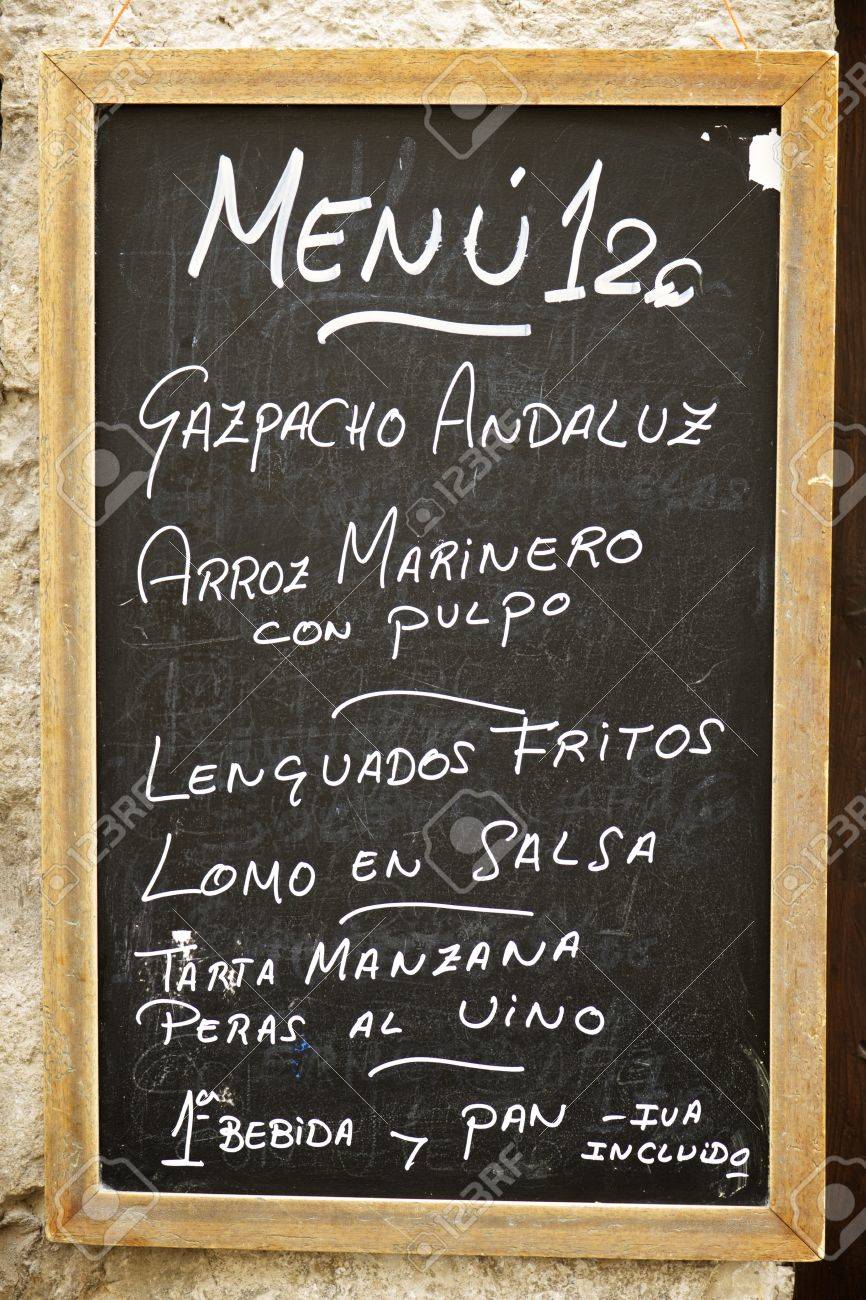 MENÚ 12
GAZPACHO ANDALUZ
ARROZ MARINERO
CON PULPO
LENGUADOS FRITOS
LOMO EN SALSA
TARTA MANZANA
PERAS AL VINO
1ª BEBIDA Y PAN - IVA
INCLUIDO